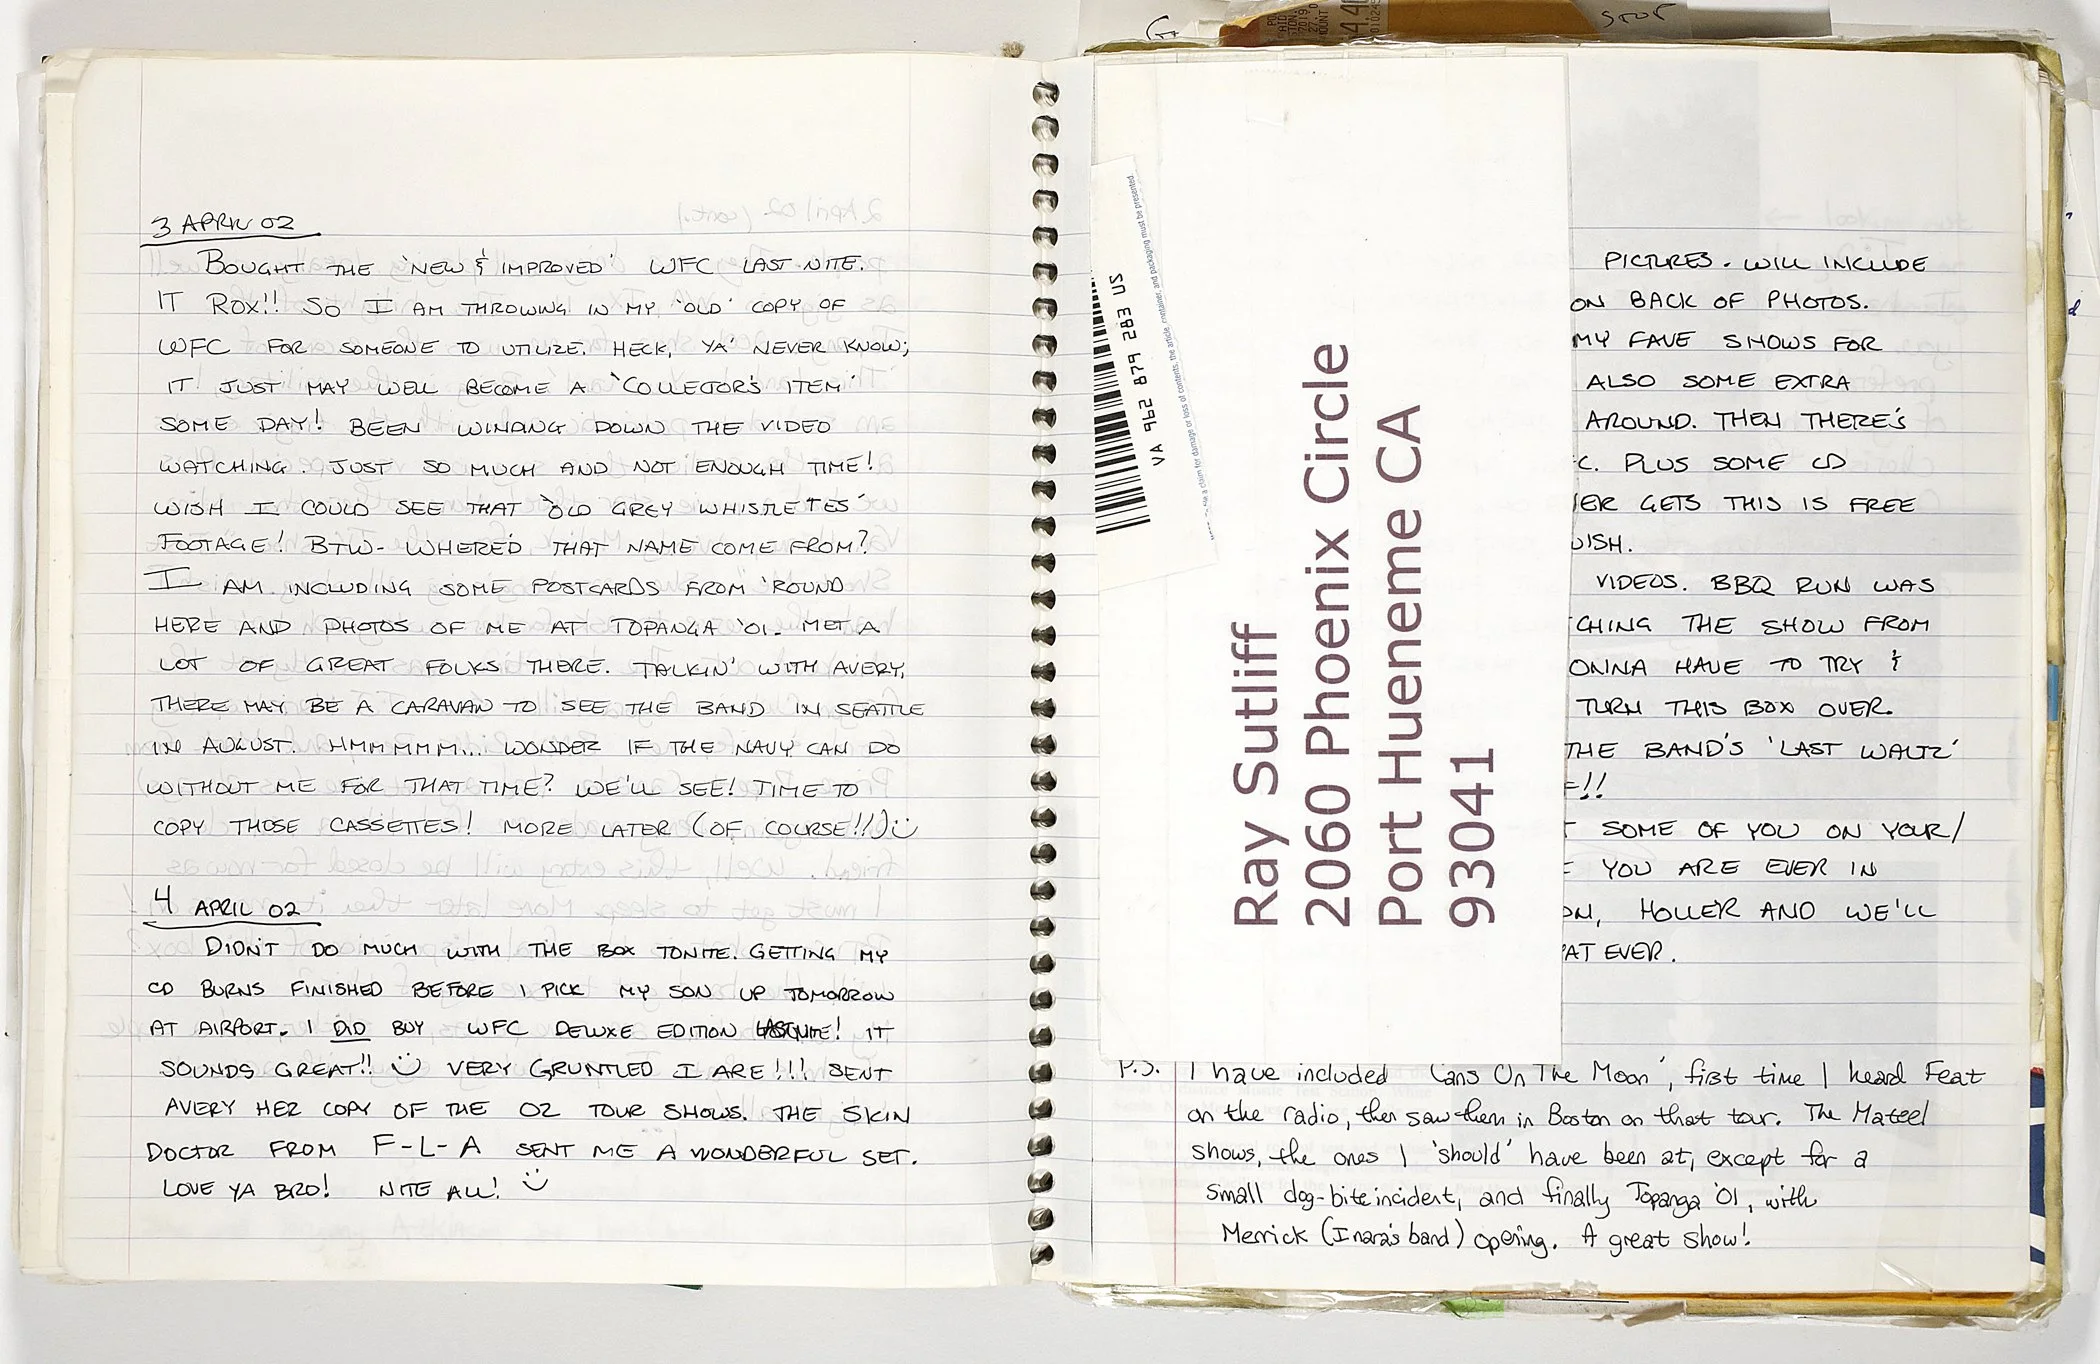 3 APRIL 02
BOUGHT THE 'NEW & IMPROVED' WFC LAST NITE.
IT ROX!! SO I AM THROWING IN MY 'OLD' COPY OF
WFC FOR SOMEONE TO UTILIZE. HECK, YA' NEVER KNOW;
IT JUST MAY WELL BECOME A 'COLLECTOR'S ITEM'
SOME DAY! BEEN WINDING DOWN THE VIDEO
WATCHING. JUST SO MUCH AND NOT ENOUGH TIME!
WISH I COULD SEE THAT 'OLD GREY WHISTLE TES'
FOOTAGE! BTW- WHERE'D THAT NAME COME FROM?
I AM INCLUDING SOME POSTCARDS FROM 'ROUND
HERE AND PHOTOS OF ME AT TOPANGA '01. MET A
LOT OF GREAT FOLKS THERE. TALKIN' WITH AVERY,
THERE MAY BE A CARAVAN TO SEE THE BAND IN SEATTLE
IN AUGUST. HMMMMM... WONDER IF THE NAVY CAN DO
WITHOUT ME FOR THAT TIME? WE'LL SEE! TIME TO
COPY THOSE CASSETTES! MORE LATER (OF COURSE!!)
4 APRIL 02
DIDN'T DO MUCH WITH THE BOX TONITE. GETTING MY
CD BURNS FINISHED BEFORE I PICK MY SON UP TOMORROW
AT AIRPORT. I DID BUY WFC DELUXE EDITION LAST NITE! IT
SOUNDS GREAT!! VERY GRUNTLED I ARE!!! SENT
AVERY HER COPY OF THE 02 TOUR SHOWS. THE SKIN
DOCTOR FROM F-L-A SENT ME A WONDERFUL SET.
LOVE YA BRO! NITE ALL!
STOP
VA 962 879 283 US
claim for damage or loss of contents, the article, container, and packaging must be presented.
Ray Sutliff
2060 Phoenix Circle
Port Hueneme CA
93041
PICTURES. WILL INCLUDE
ON BACK OF PHOTOS.
MY FAVE SHOWS FOR
ALSO SOME EXTRA
AROUND. THEN THERE'S
C. PLUS SOME CD
ER GETS THIS IS FREE
ISH.
VIDEOS. BBQ RUN WAS
CHING THE SHOW FROM
ONNA HAVE TO TRY &
TURN THIS BOX OVER.
THE BAND'S 'LAST WALTZ'
!!
SOME OF YOU ON YOUR/
YOU ARE EVER IN
ON, HOLLER AND WE'LL
AT EVER.
P.S. I have included 'Cans On The Moon', first time I heard Feat
on the radio, then saw them in Boston on that tour. The Mateel
shows, the ones I 'should' have been at, except for a
small dog-bite incident, and finally Topanga '01, with
Merrick (Inara's band) opening. A great show!